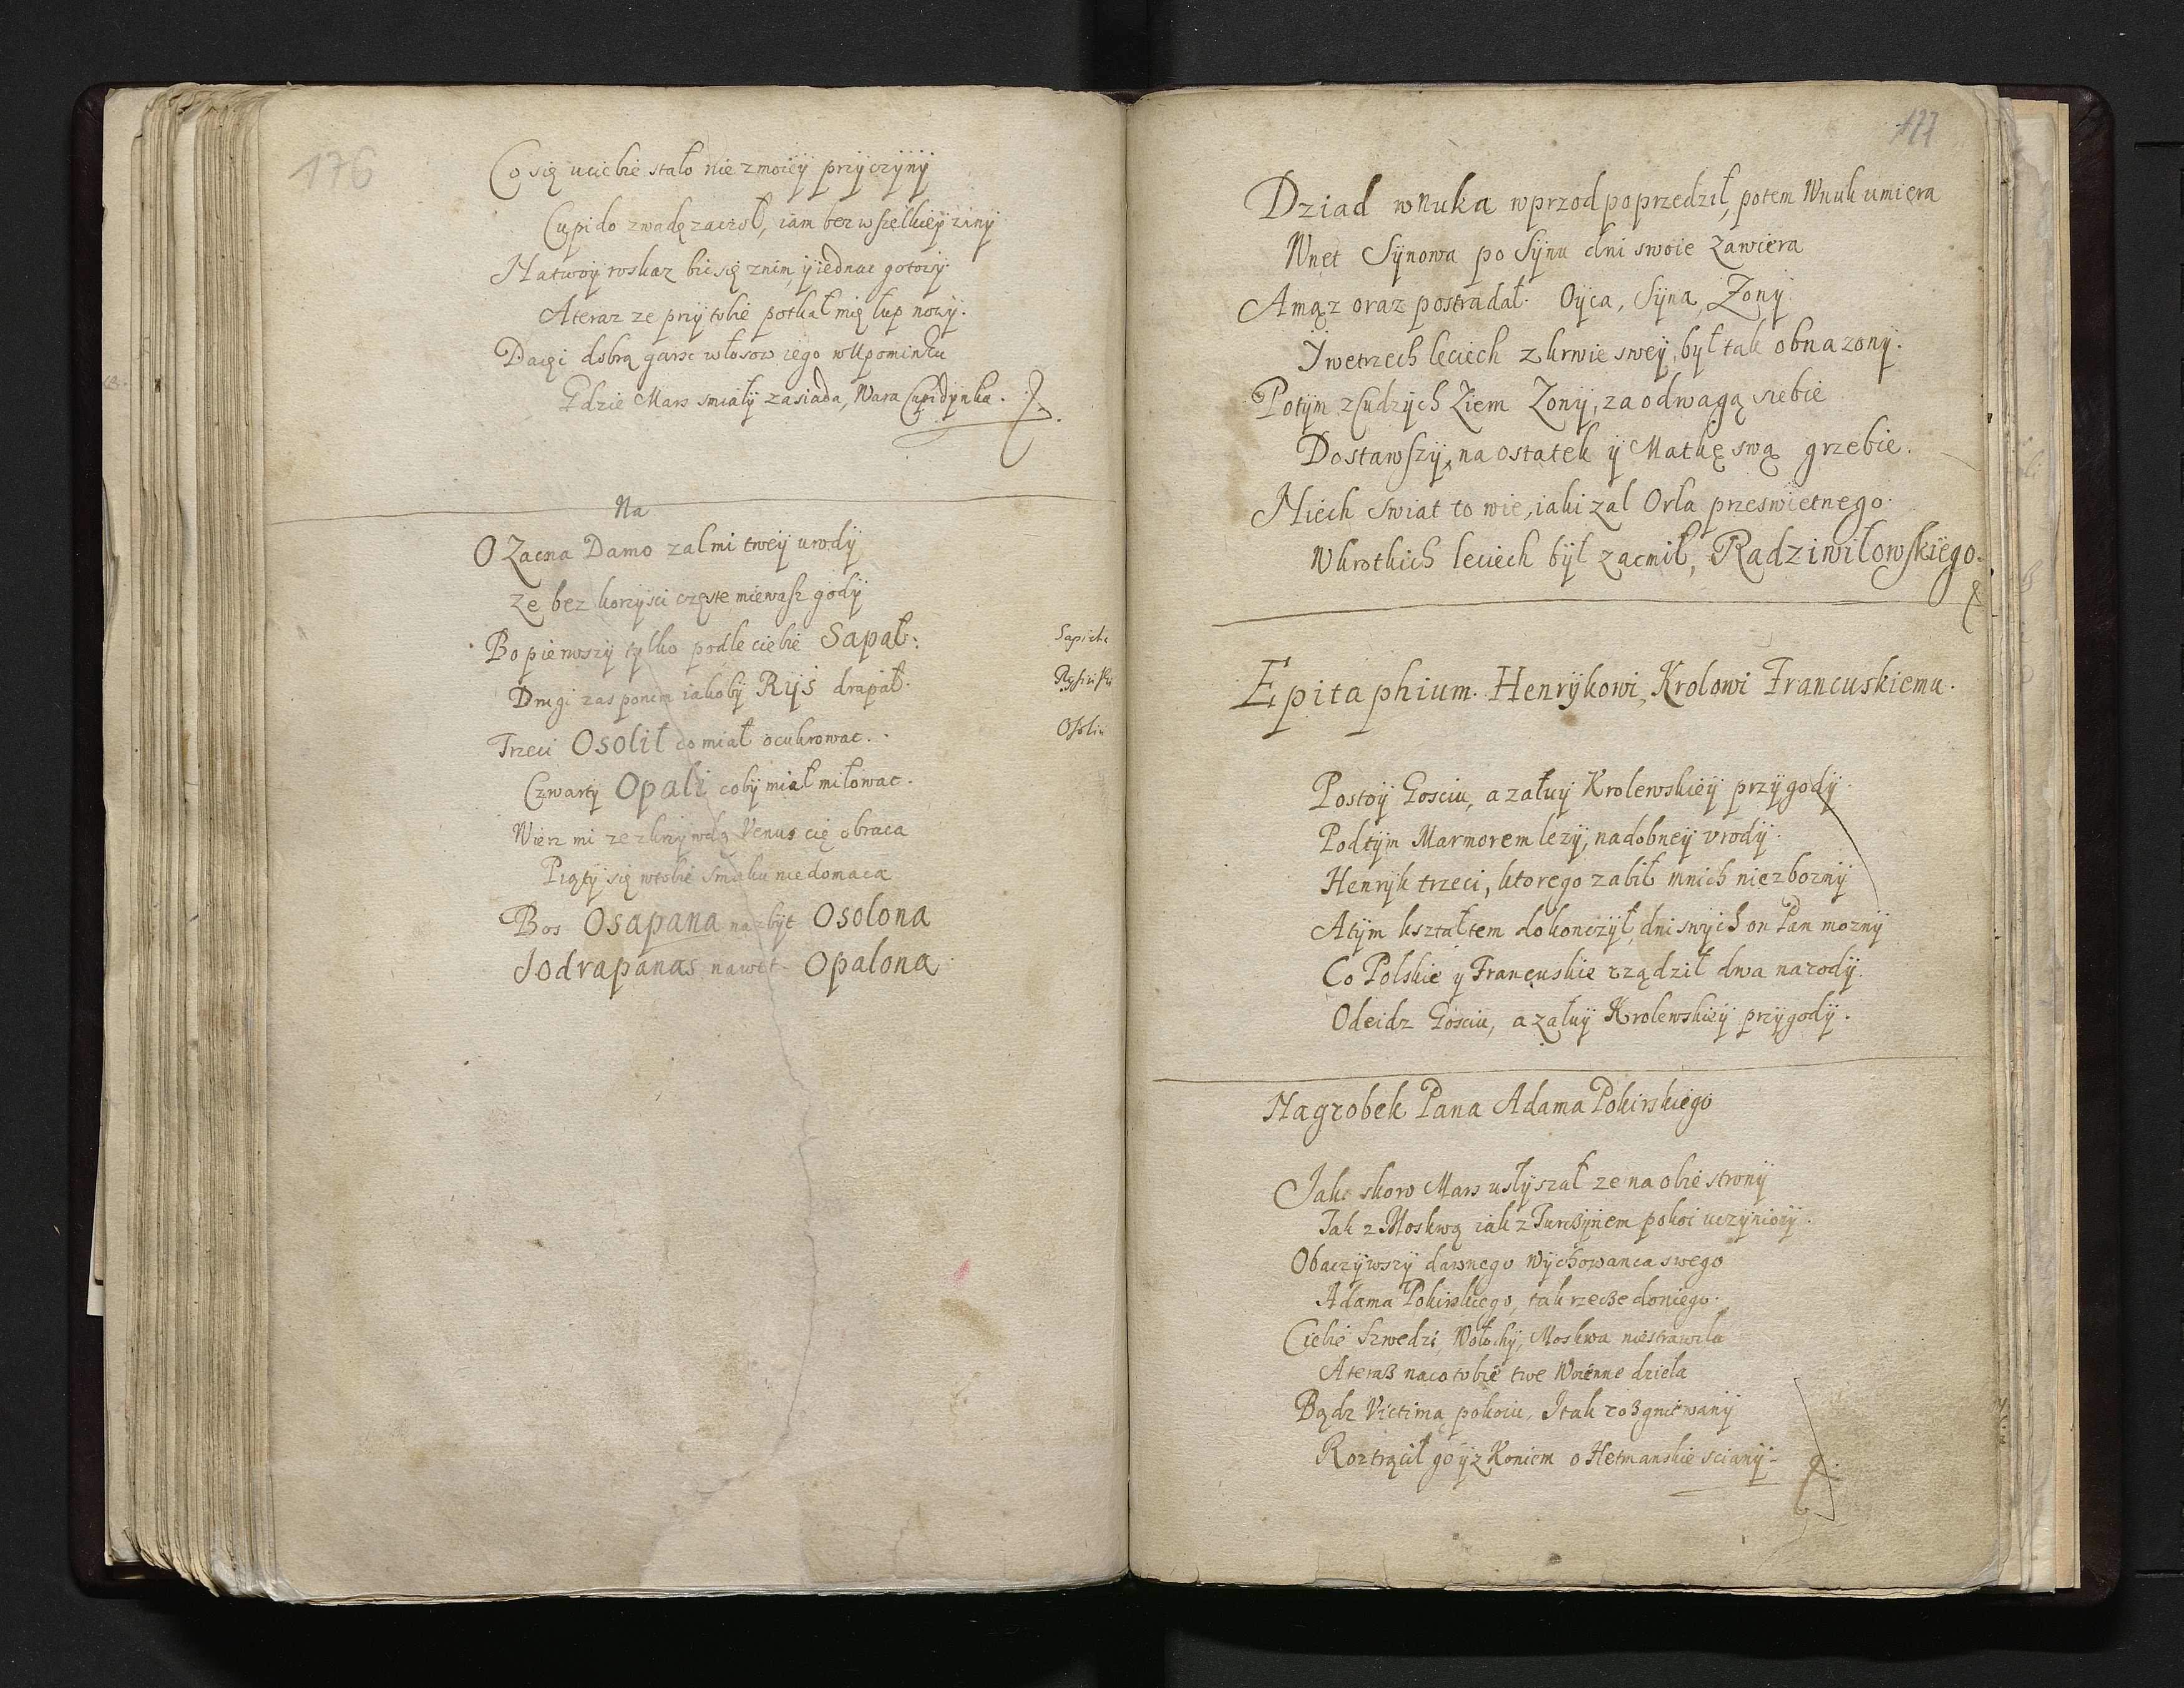 176
Co się uciebie stało nie zmoiey przyczyny
Cupido zwadę zaczoł, iam bez wszelkiey winy
Natwoy roskaz bic się znim, y iednac gotowy
Ateraz ze przy tobie potkał mię łup nowy.
Dacęi dobrą garsc włosow iego wUpominku
Gdzie Mars smiały zasiada, Wara Cupidynku.
Na
O Zacna Damo zal mi twey urody
Ze bez korzysci częste miewasz gody
Bo pierwszy tylko podle ciebie Sapał. Sapieha
Drugi zas ponim iakoby Ryś drapał.
Trzeci Osolił co miał ocukrowac. Osolin
Czwarty Opali coby miał miłowac.
Wierz mi ze zkrzywdą Venus cię obraca
Piąty się wtobie smaku nie domaca
Bos Osapana nazbyt Osolona
Jodrapanas nawet Opalona
177
Dziad wnuka wprzod poprzedził, potem Wnuk umiera
Wnet Synowa po Synu dni swoie zawiera
Amąz oraz postradał. Oyca, Syna, Zony
Y wetrzech leciech zkrwie swey, był tak obnazony.
Potym zCudzych Ziem Zony, za odwagą siebie
Dostawszy, na ostatek y Matkę swą grzebie.
Niech swiat to wie, iaki zal Orła przeswietnego
Wkrotkich leciech był zacmił, Radziwiłowskiego.
Epitaphium. Henrykowi, Krolowi Francuskiemu.
Postoy Gosciu, a załuy Krolewskiey przygody.
Podtym Marmorem lezy, nadobney vrody.
Henryk trzeci, ktorego zabił mnich niezbozny
Atym kształtem dokonczył, dni swych on Pan mozny
Co Polskie y Francuskie rządził dwa narody.
Odeidz Gosciu, a załuy Krolewskiey przygody.
Nagrobek Pana Adama Pokirskiego
Jako skoro Mars usłyszał ze na obie strony
Tak z Moskwą iak z Turczynem pokoi uczyniony.
Obaczywszy dawnego Wychowanca swego
Adama Pokirskiego, tak rzecze doniego.
Ciebie Szwedzi, Wołochy, Moskwa niestrawiła
Ateraz naco tobie twe Woienne dzieła
Bądz Victimą pokoiu, Itak rozgniewany
Roztrącił go yz Koniem o Hetmanskie sciany.